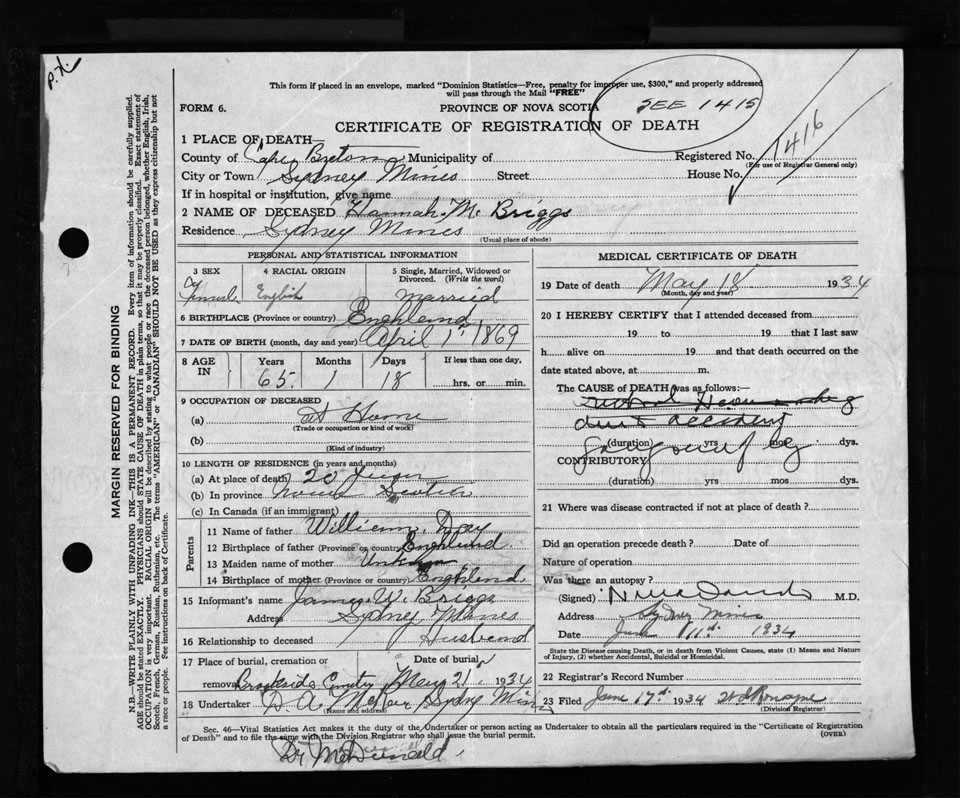 P.X.
This form if placed in an envelope, marked "Dominion Statistics—Free, penalty for improper use, $300," and properly addressed
will pass through the Mail "FREE"
FORM 6.
PROVINCE OF NOVA SCOTIA
SEE 1415
CERTIFICATE OF REGISTRATION OF DEATH
1 PLACE OF DEATH—
County of Cape Breton Municipality of
Registered No. 1416
(For use of Registrar General only)
City or Town Sydney Mines Street House No.
If in hospital or institution, give name
2 NAME OF DECEASED Hannah. M. Briggs
Residence Sydney Mines
(Usual place of abode)
PERSONAL AND STATISTICAL INFORMATION
3 SEX 4 RACIAL ORIGIN 5 Single, Married, Widowed or
Divorced. (Write the word)
English Married
6 BIRTHPLACE (Province or country) England
7 DATE OF BIRTH (month, day and year) April 1st 1869
8 AGE IN Years Months Days If less than one day,
65 1 18 hrs. or min.
9 OCCUPATION OF DECEASED
(a) At Home
(Trade or occupation or kind of work)
(b)
(Kind of industry)
10 LENGTH OF RESIDENCE (in years and months)
(a) At place of death 20 years
(b) In province Nova Scotia
(c) In Canada (if an immigrant)
Parents
11 Name of father William. Day
12 Birthplace of father (Province or country) England
13 Maiden name of mother Unknown
14 Birthplace of mother (Province or country) England
15 Informant's name James. W. Briggs
Address Sydney Mines
16 Relationship to deceased Husband
17 Place of burial, cremation or Date of burial
removal Brookside Cemetery May 21. 1934
18 Undertaker D. A. Sydney Mines
(Name and address)
MEDICAL CERTIFICATE OF DEATH
19 Date of death May 18 1934
(Month, day and year)
20 I HEREBY CERTIFY that I attended deceased from
19 to 19 that I last saw
h alive on 19 and that death occurred on the
date stated above, at m.
The CAUSE of DEATH was as follows:—
accident
(duration) yrs mos. dys.
CONTRIBUTORY
(duration) yrs mos dys.
21 Where was disease contracted if not at place of death?
Did an operation precede death? Date of
Nature of operation
Was there an autopsy?
(Signed) M.D.
Address Sydney Mines
Date June 11th 1934
State the Disease causing Death, or in death from Violent Causes, state (1) Means and Nature
of Injury, (2) whether Accidental, Suicidal or Homicidal.
22 Registrar's Record Number
23 Filed June 17th 1934
(Division Registrar)
Sec. 46—Vital Statistics Act makes it the duty of the Undertaker or person acting as Undertaker to obtain all the particulars required in the "Certificate of Registration
of Death" and to file the same with the Division Registrar who shall issue the burial permit.
(OVER)
Dr McDonald
MARGIN RESERVED FOR BINDING
N.B.—WRITE PLAINLY WITH UNFADING INK—THIS IS A PERMANENT RECORD. Every item of information should be carefully supplied.
AGE should be stated EXACTLY. PHYSICIANS should STATE CAUSE OF DEATH in plain terms, so that it may be properly classified. Exact statement of
OCCUPATION is very important. RACIAL ORIGIN will be described by stating to what people or race the deceased person belonged, whether English, Irish,
Scotch, French, German, Russian, Ruthenian, etc. The terms "AMERICAN" or "CANADIAN" SHOULD NOT BE USED as they express citizenship but not
a race or people. See instructions on back of Certificate.